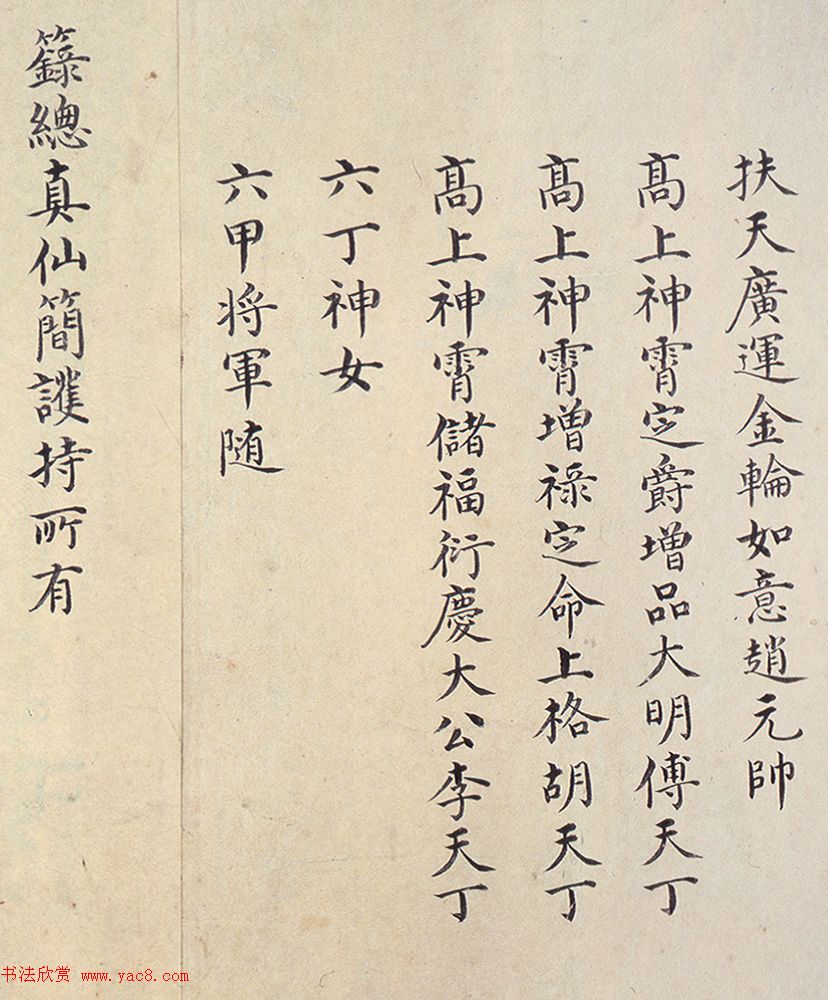 扶天廣運金輪如意趙元帥
高上神霄定爵增品大明傅天丁
高上神霄增祿定命上格胡天丁
高上神霄儲福衍慶大公李天丁
六丁神女
六甲将軍随
籙總真仙簡護持所有
书法欣赏 www.yac8.com